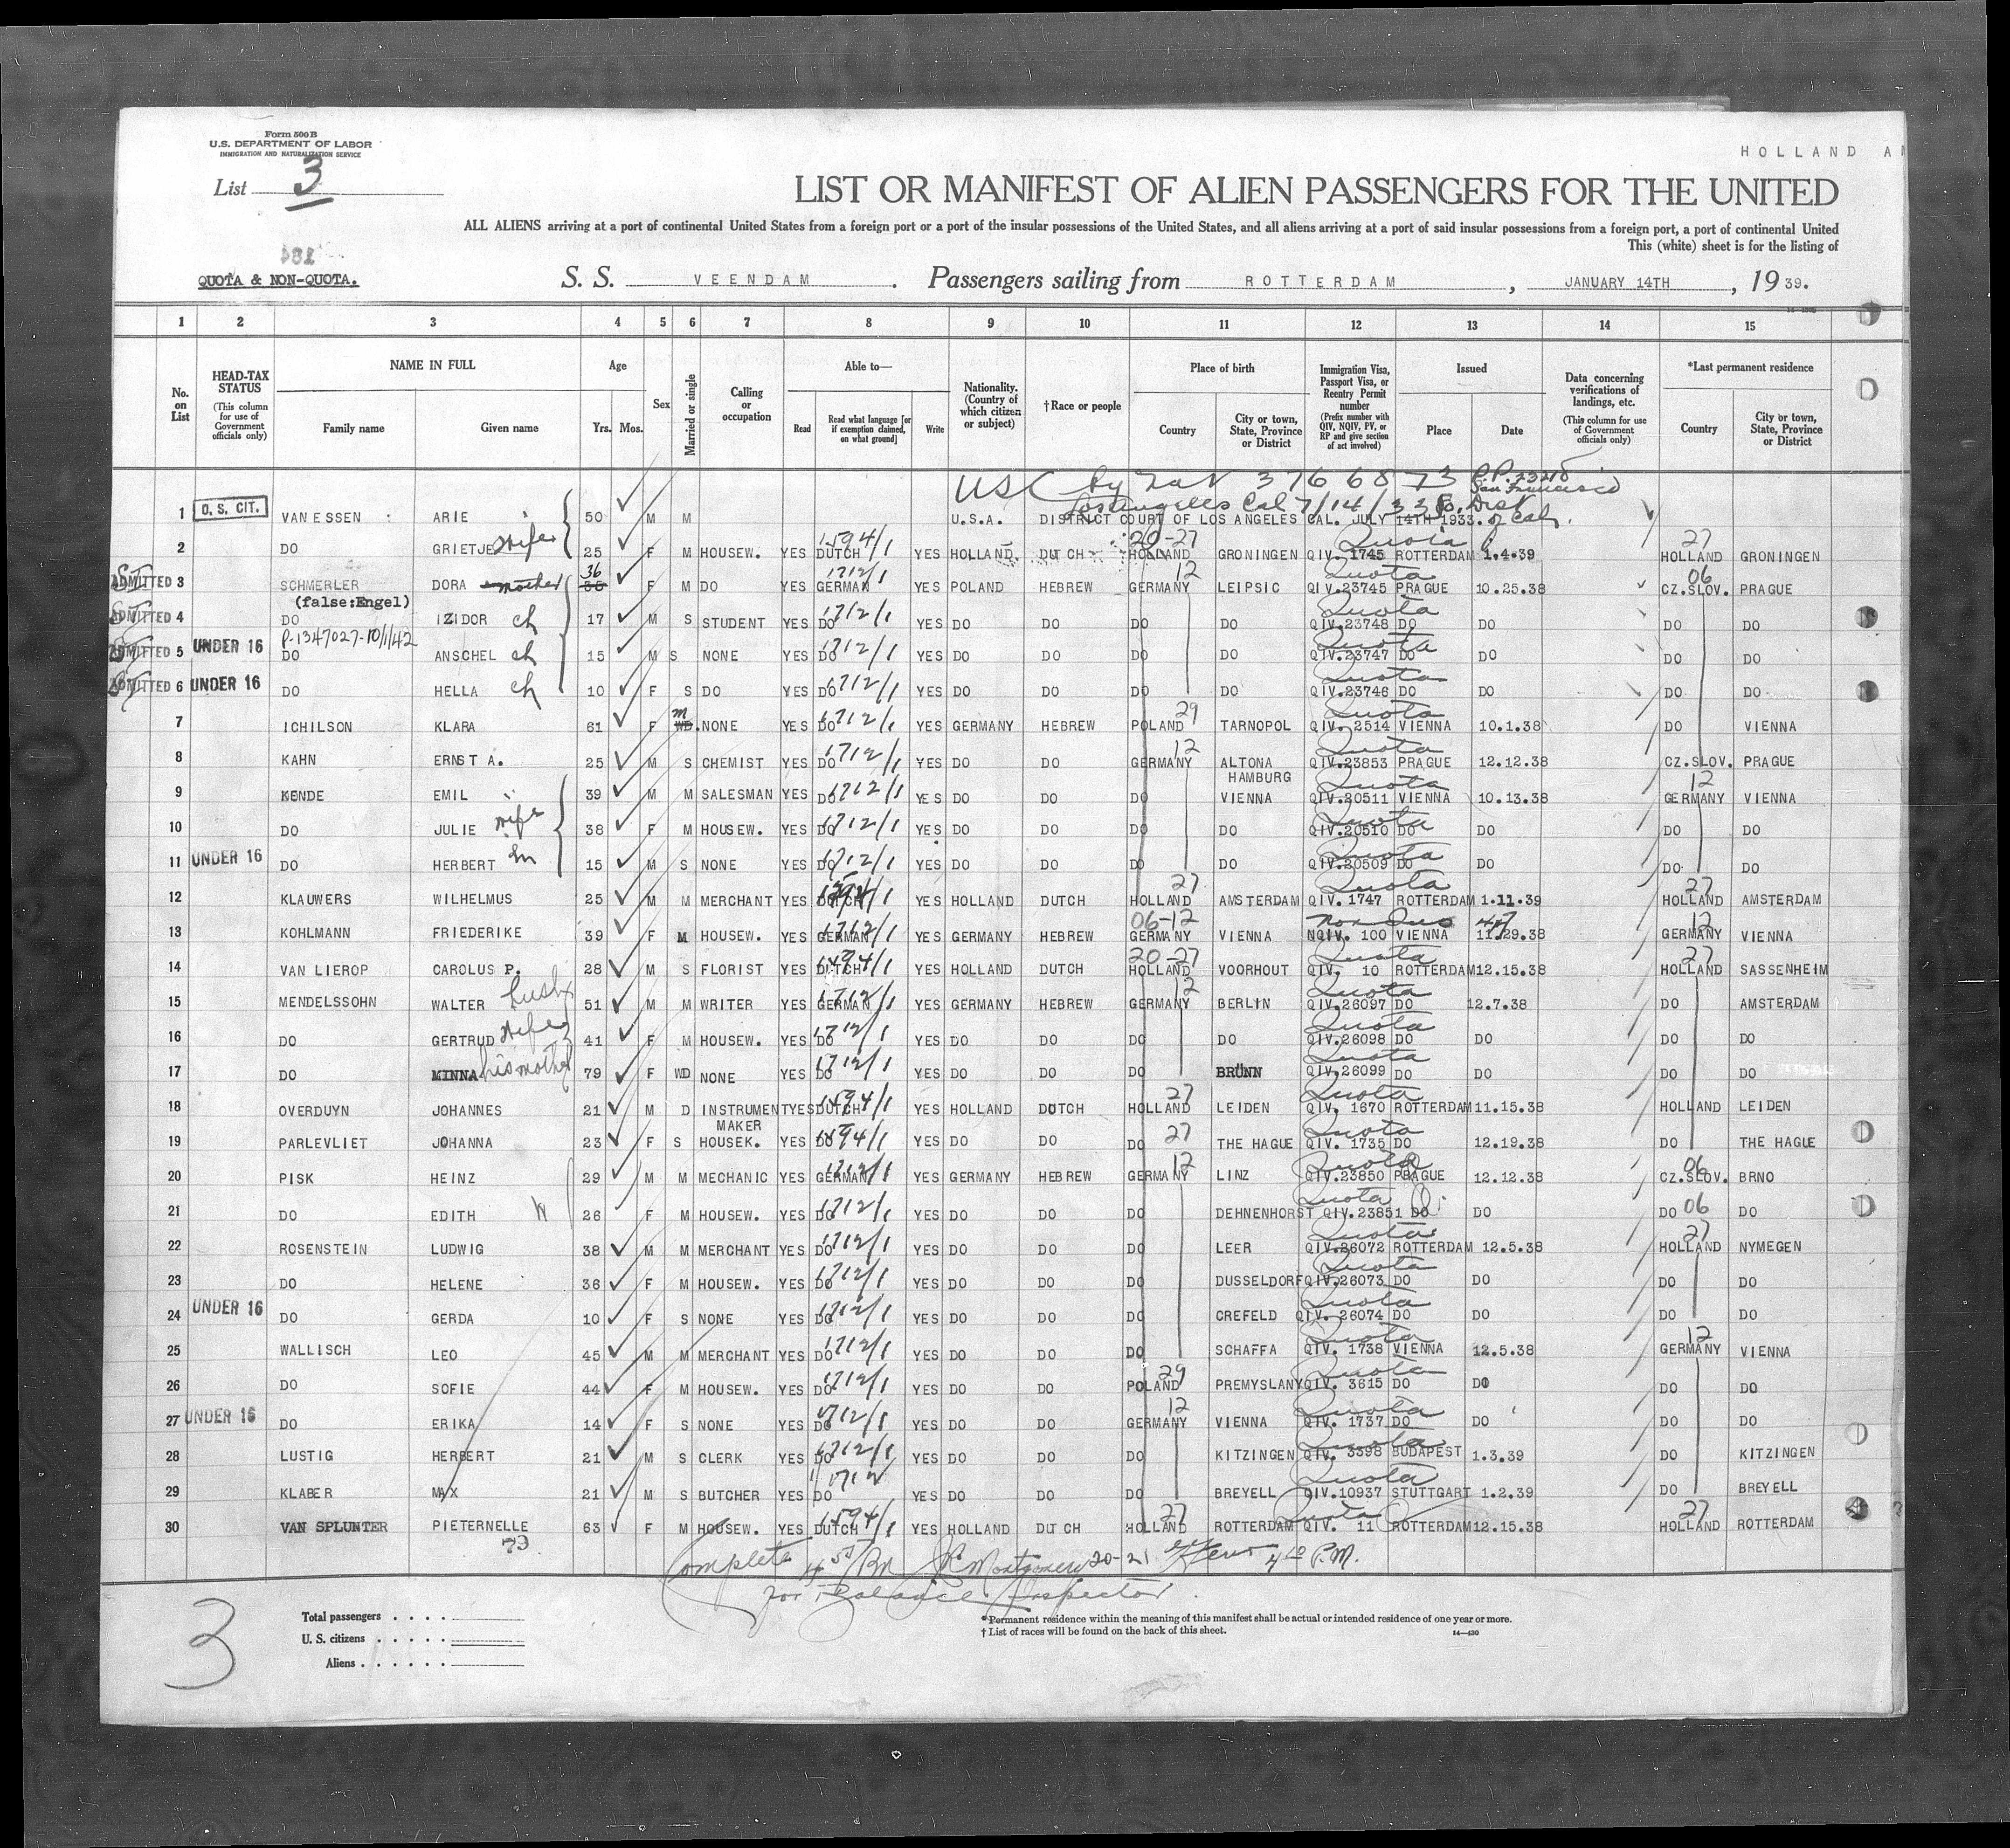 Form 500 B
U.S. DEPARTMENT OF LABOR
IMMIGRATION AND NATURALIZATION SERVICE
HOLLAND AM
List 3
LIST OR MANIFEST OF ALIEN PASSENGERS FOR THE UNITED
ALL ALIENS arriving at a port of continental United States from a foreign port or a port of the insular possessions of the United States, and all aliens arriving at a port of said insular possessions from a foreign port, a port of continental United
This (white) sheet is for the listing of
QUOTA & NON-QUOTA. S. S. VEENDAM . Passengers sailing from ROTTERDAM , JANUARY 14TH , 19 39.
1 2 3 4 5 6 7 8 9 10 11 12 13 14 15
No. on List HEAD-TAX STATUS (This column for use of Government officials only) NAME IN FULL Family name Given name Age Yrs. Mos. Sex Married or single Calling or occupation Able to— Read Read what language [or if exemption claimed, on what ground] Write Nationality. (Country of which citizen or subject) †Race or people Place of birth Country City or town, State, Province or District Immigration Visa, Passport Visa, or Reentry Permit number (Prefix number with QIV, NQIV, PV, or RP and give section of act involved) Issued Place Date Data concerning verifications of landings, etc. (This column for use of Government officials only) *Last permanent residence Country City or town, State, Province or District
USC by Nat 3766873 P.P. 23210 San Francisco
Los Angeles Cal 7/14/33 So. Dist of Cal.
1 U.S. CIT. VAN ESSEN ARIE 50 M M U.S.A. DISTRICT COURT OF LOS ANGELES CAL. JULY 14TH 1933.
2 DO GRIETJE Wife 25 F M HOUSEW. YES DUTCH 1594/1 YES HOLLAND. DUTCH 20-27 HOLLAND GRONINGEN Quota QIV. 1745 ROTTERDAM 1.4.39 27 HOLLAND GRONINGEN
ADMITTED 3 SCHMERLER DORA mother 36 F M DO YES GERMAN 1712/1 YES POLAND HEBREW 12 GERMANY LEIPSIC Quota QIV.23745 PRAGUE 10.25.38 06 CZ.SLOV. PRAGUE
(false:Engel)
ADMITTED 4 DO IZIDOR ch 17 M S STUDENT YES DO 1712/1 YES DO DO DO DO Quota QIV.23748 DO DO DO DO
P-1347027-10/1/42
ADMITTED 5 UNDER 16 DO ANSCHEL ch 15 M S NONE YES DO 1712/1 YES DO DO DO DO Quota QIV.23747 DO DO DO DO
ADMITTED 6 UNDER 16 DO HELLA ch 10 F S DO YES DO 1712/1 YES DO DO DO DO Quota QIV.23746 DO DO DO DO
7 ICHILSON KLARA 61 F M WD. NONE YES DO 1712/1 YES GERMANY HEBREW 29 POLAND TARNOPOL Quota QIV. 2514 VIENNA 10.1.38 DO VIENNA
8 KAHN ERNST A. 25 M S CHEMIST YES DO 1712/1 YES DO DO 12 GERMANY ALTONA HAMBURG Quota QIV.23853 PRAGUE 12.12.38 CZ.SLOV. PRAGUE
9 KENDE EMIL 39 M M SALESMAN YES DO 1712/1 YES DO DO DO VIENNA Quota QIV.20511 VIENNA 10.13.38 12 GERMANY VIENNA
10 DO JULIE wife 38 F M HOUSEW. YES DO 1712/1 YES DO DO DO DO Quota QIV.20510 DO DO DO DO
11 UNDER 16 DO HERBERT Sn 15 M S NONE YES DO 1712/1 YES DO DO DO DO Quota QIV.20509 DO DO DO DO
12 KLAUWERS WILHELMUS 25 M M MERCHANT YES DUTCH YES HOLLAND DUTCH 27 HOLLAND AMSTERDAM Quota QIV. 1747 ROTTERDAM 1.11.39 27 HOLLAND AMSTERDAM
13 KOHLMANN FRIEDERIKE 39 F M HOUSEW. YES GERMAN 1712/1 YES GERMANY HEBREW 06-12 GERMANY VIENNA Non Quo NQIV. 100 VIENNA 11.29.38 12 GERMANY VIENNA
14 VAN LIEROP CAROLUS P. 28 M S FLORIST YES DUTCH 1594/1 YES HOLLAND DUTCH 20-27 HOLLAND VOORHOUT Quota QIV. 10 ROTTERDAM 12.15.38 27 HOLLAND SASSENHEIM
15 MENDELSSOHN WALTER husb 51 M M WRITER YES GERMAN 1712/1 YES GERMANY HEBREW 12 GERMANY BERLIN Quota QIV.26097 DO 12.7.38 DO AMSTERDAM
16 DO GERTRUD Wife 41 F M HOUSEW. YES DO 1712/1 YES DO DO DO DO Quota QIV.26098 DO DO DO DO
17 DO MINNA his mother 79 F WD NONE YES DO 1712/1 YES DO DO DO BRÜNN Quota QIV.26099 DO DO DO DO
18 OVERDUYN JOHANNES 21 M D INSTRUMENT MAKER YES DUTCH 1594/1 YES HOLLAND DUTCH 27 HOLLAND LEIDEN Quota QIV. 1670 ROTTERDAM 11.15.38 HOLLAND LEIDEN
19 PARLEVLIET JOHANNA 23 F S HOUSEK. YES DO 1594/1 YES DO DO DO 27 THE HAGUE Quota QIV. 1735 DO 12.19.38 DO THE HAGUE
20 PISK HEINZ 29 M M MECHANIC YES GERMAN 1712/1 YES GERMANY HEBREW 12 GERMANY LINZ Quota QIV.23850 PRAGUE 12.12.38 06 CZ.SLOV. BRNO
21 DO EDITH W 26 F M HOUSEW. YES DO 1712/1 YES DO DO DO DEHNENHORST Quota QIV.23851 DO DO DO 06 DO
22 ROSENSTEIN LUDWIG 38 M M MERCHANT YES DO 1712/1 YES DO DO DO LEER Quota QIV.26072 ROTTERDAM 12.5.38 27 HOLLAND NYMEGEN
23 DO HELENE 36 F M HOUSEW. YES DO 1712/1 YES DO DO DO DUSSELDORF Quota QIV.26073 DO DO DO DO
24 UNDER 16 DO GERDA 10 F S NONE YES DO 1712/1 YES DO DO DO CREFELD Quota QIV. 26074 DO DO DO DO
25 WALLISCH LEO 45 M M MERCHANT YES DO 1712/1 YES DO DO DO SCHAFFA Quota QIV. 1738 VIENNA 12.5.38 12 GERMANY VIENNA
26 DO SOFIE 44 F M HOUSEW. YES DO 1712/1 YES DO DO 29 POLAND PREMYSLANY Quota QIV. 3615 DO DO DO DO
27 UNDER 16 DO ERIKA 14 F S NONE YES DO 1712/1 YES DO DO 12 GERMANY VIENNA Quota QIV. 1737 DO DO DO DO
28 LUSTIG HERBERT 21 M S CLERK YES DO 1712/1 YES DO DO DO KITZINGEN Quota QIV. 3398 BUDAPEST 1.3.39 DO KITZINGEN
29 KLABER MAX 21 M S BUTCHER YES DO 1712 YES DO DO DO BREYELL Quota QIV.10937 STUTTGART 1.2.39 DO BREYELL
30 VAN SPLUNTER PIETERNELLE 63 F M HOUSEW. YES DUTCH 1594/1 YES HOLLAND DUTCH 27 HOLLAND ROTTERDAM Quota QIV. 11 ROTTERDAM 12.15.38 27 HOLLAND ROTTERDAM
73
Complete Montgomery 20-21 4 10 P.M.
for Balance Inspector
3
Total passengers
U. S. citizens
Aliens
*Permanent residence within the meaning of this manifest shall be actual or intended residence of one year or more.
† List of races will be found on the back of this sheet. 14—430